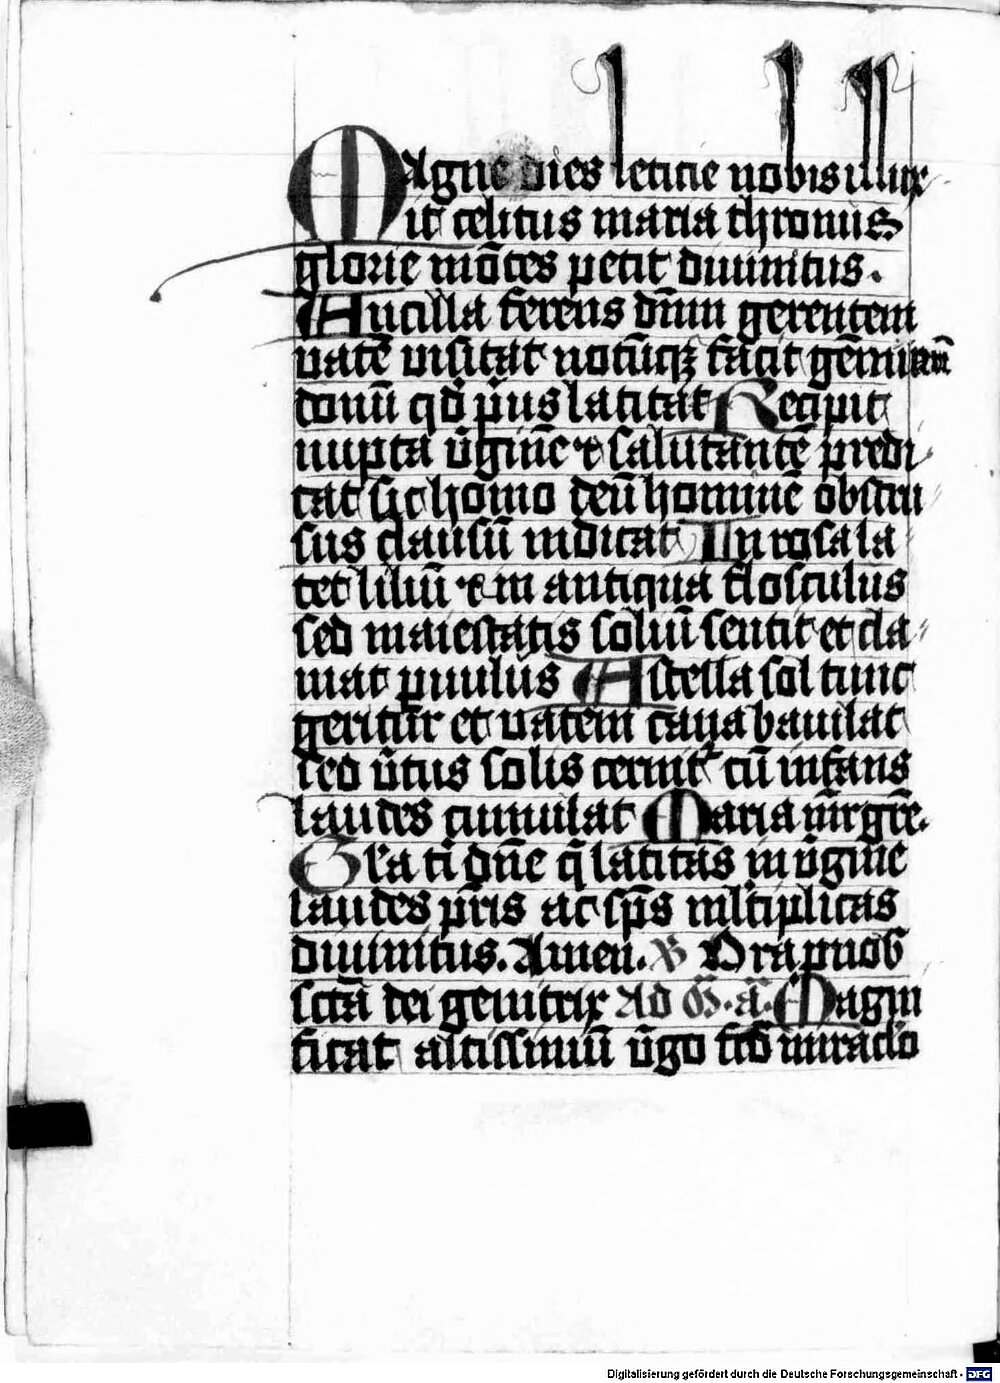 Magne dies leticie nobis illux
it celitus maria thronus
glorie mōtes petit diuinitus.
Ancilla ferens dn̄m gerentem
vatē visitat notūqꝫ facit gēminatū
donū qd̄ p̄us latitat Recipit
nupta v̄ginē ⁊ salutantē predi
cat sic homo deū hominē obstru
sus clausū indicat In rosa la
tet liliū ⁊ in antiqua flosculus
sed maiestatis soliū sentit et cla
mat puulus A stella sol tunc
geritur et vatem caua baiulat
sed v̄tus solis cernit᷑ cū infans
laudes cumulat Maria mr̄ grē.
Gl̄a ti dn̄e q̄ latitas in v̄gine
laudes pr̄is ac sp̄s ml̄tiplicas
diuinitus. Amen. V̄ Ora p nob
sctā dei genitrix Ad M̄. a. Magni
ficat altissimū v̄go